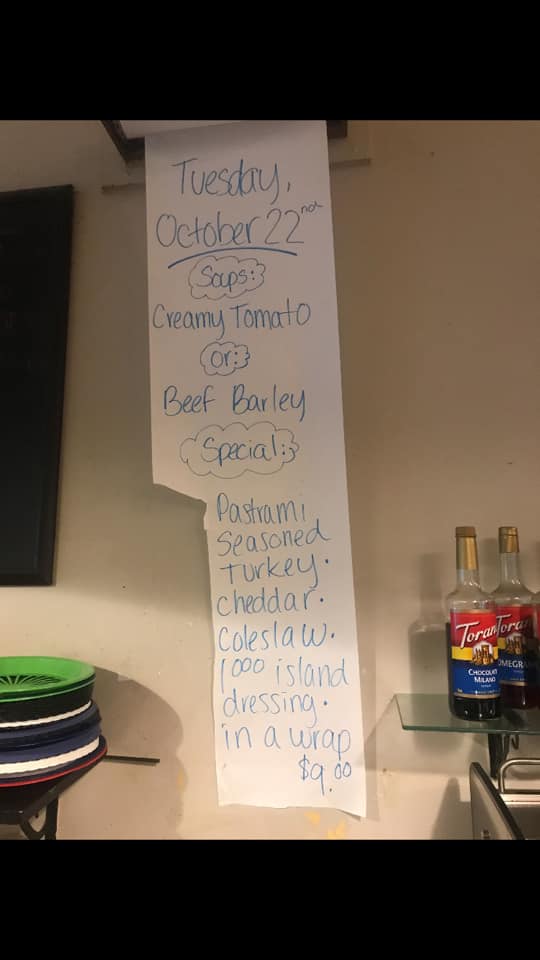 Tuesday,
October 22nd
Soups:
Creamy Tomato
or:
Beef Barley
Special:
Pastrami
Seasoned
Turkey.
cheddar.
Coleslaw.
1000 island
dressing.
in a wrap
$9.00
Torani
CHOCOLATE
MILANO
Toran